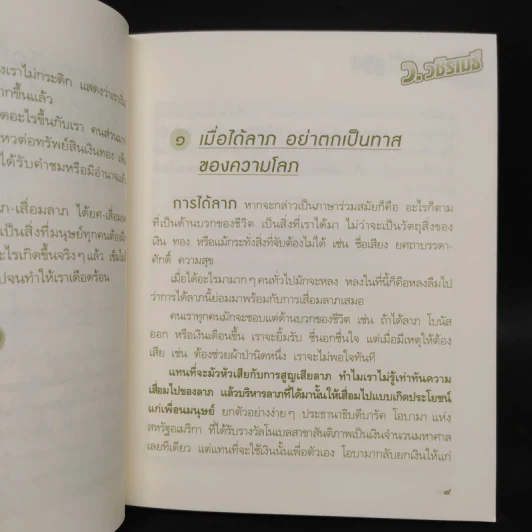 งเราไม่กระดิก แสดงว่าเรา
ากขึ้นแล้ว
ดอะไรขึ้นกับเรา คนส่วนมาก
หวต่อทรัพย์สินเงินทอง
ได้รับคำชมหรือมีอำนาจแล้ว
ภ-เสื่อมลาภ ได้ยศ-เสื่อมยศ
เป็นสิ่งที่มนุษย์ทุกคนต้อง
ะไรเกิดขึ้นจริงๆ แล้ว
ปจนทำให้เราเดือดร้อน
ว.วชิรเมธี
๑ เมื่อได้ลาภ อย่าตกเป็นทาส
ของความโลภ
การได้ลาภ หากจะกล่าวเป็นภาษาร่วมสมัยก็คือ อะไรก็ตาม
ที่เป็นด้านบวกของชีวิต เป็นสิ่งที่เราได้มา ไม่ว่าจะเป็นวัตถุสิ่งของ
เงิน ทอง หรือแม้กระทั่งสิ่งที่จับต้องไม่ได้ เช่น ชื่อเสียง ยศถาบรรดา-
ศักดิ์ ความสุข
เมื่อได้อะไรมามากๆ คนทั่วไปมักจะหลง หลงในที่นี้ก็คือหลงลืมไป
ว่าการได้ลาภนี้ย่อมมาพร้อมกับการเสื่อมลาภเสมอ
คนเราทุกคนมักจะชอบแต่ด้านบวกของชีวิต เช่น ถ้าได้ลาภ โบนัส
ออก หรือเงินเดือนขึ้น เราจะยิ้มรับ ชื่นอกชื่นใจ แต่เมื่อมีเหตุให้ต้อง
เสีย เช่น ต้องช่วยผ้าป่านิดหนึ่ง เราจะไม่พอใจทันที
แทนที่จะมัวหัวเสียกับการสูญเสียลาภ ทำไมเราไม่รู้เท่าทันความ
เสื่อมไปของลาภ แล้วบริหารลาภที่ได้มานั้นให้เสื่อมไปแบบเกิดประโยชน์
แก่เพื่อนมนุษย์ ยกตัวอย่างง่ายๆ ประธานาธิบดีบารัค โอบามา แห่ง
สหรัฐอเมริกา ที่ได้รับรางวัลโนเบลสาขาสันติภาพเป็นเงินจำนวนมหาศาล
เลยทีเดียว แต่แทนที่จะใช้เงินนั้นเพื่อตัวเอง โอบามากลับยกเงินให้แก่
๙